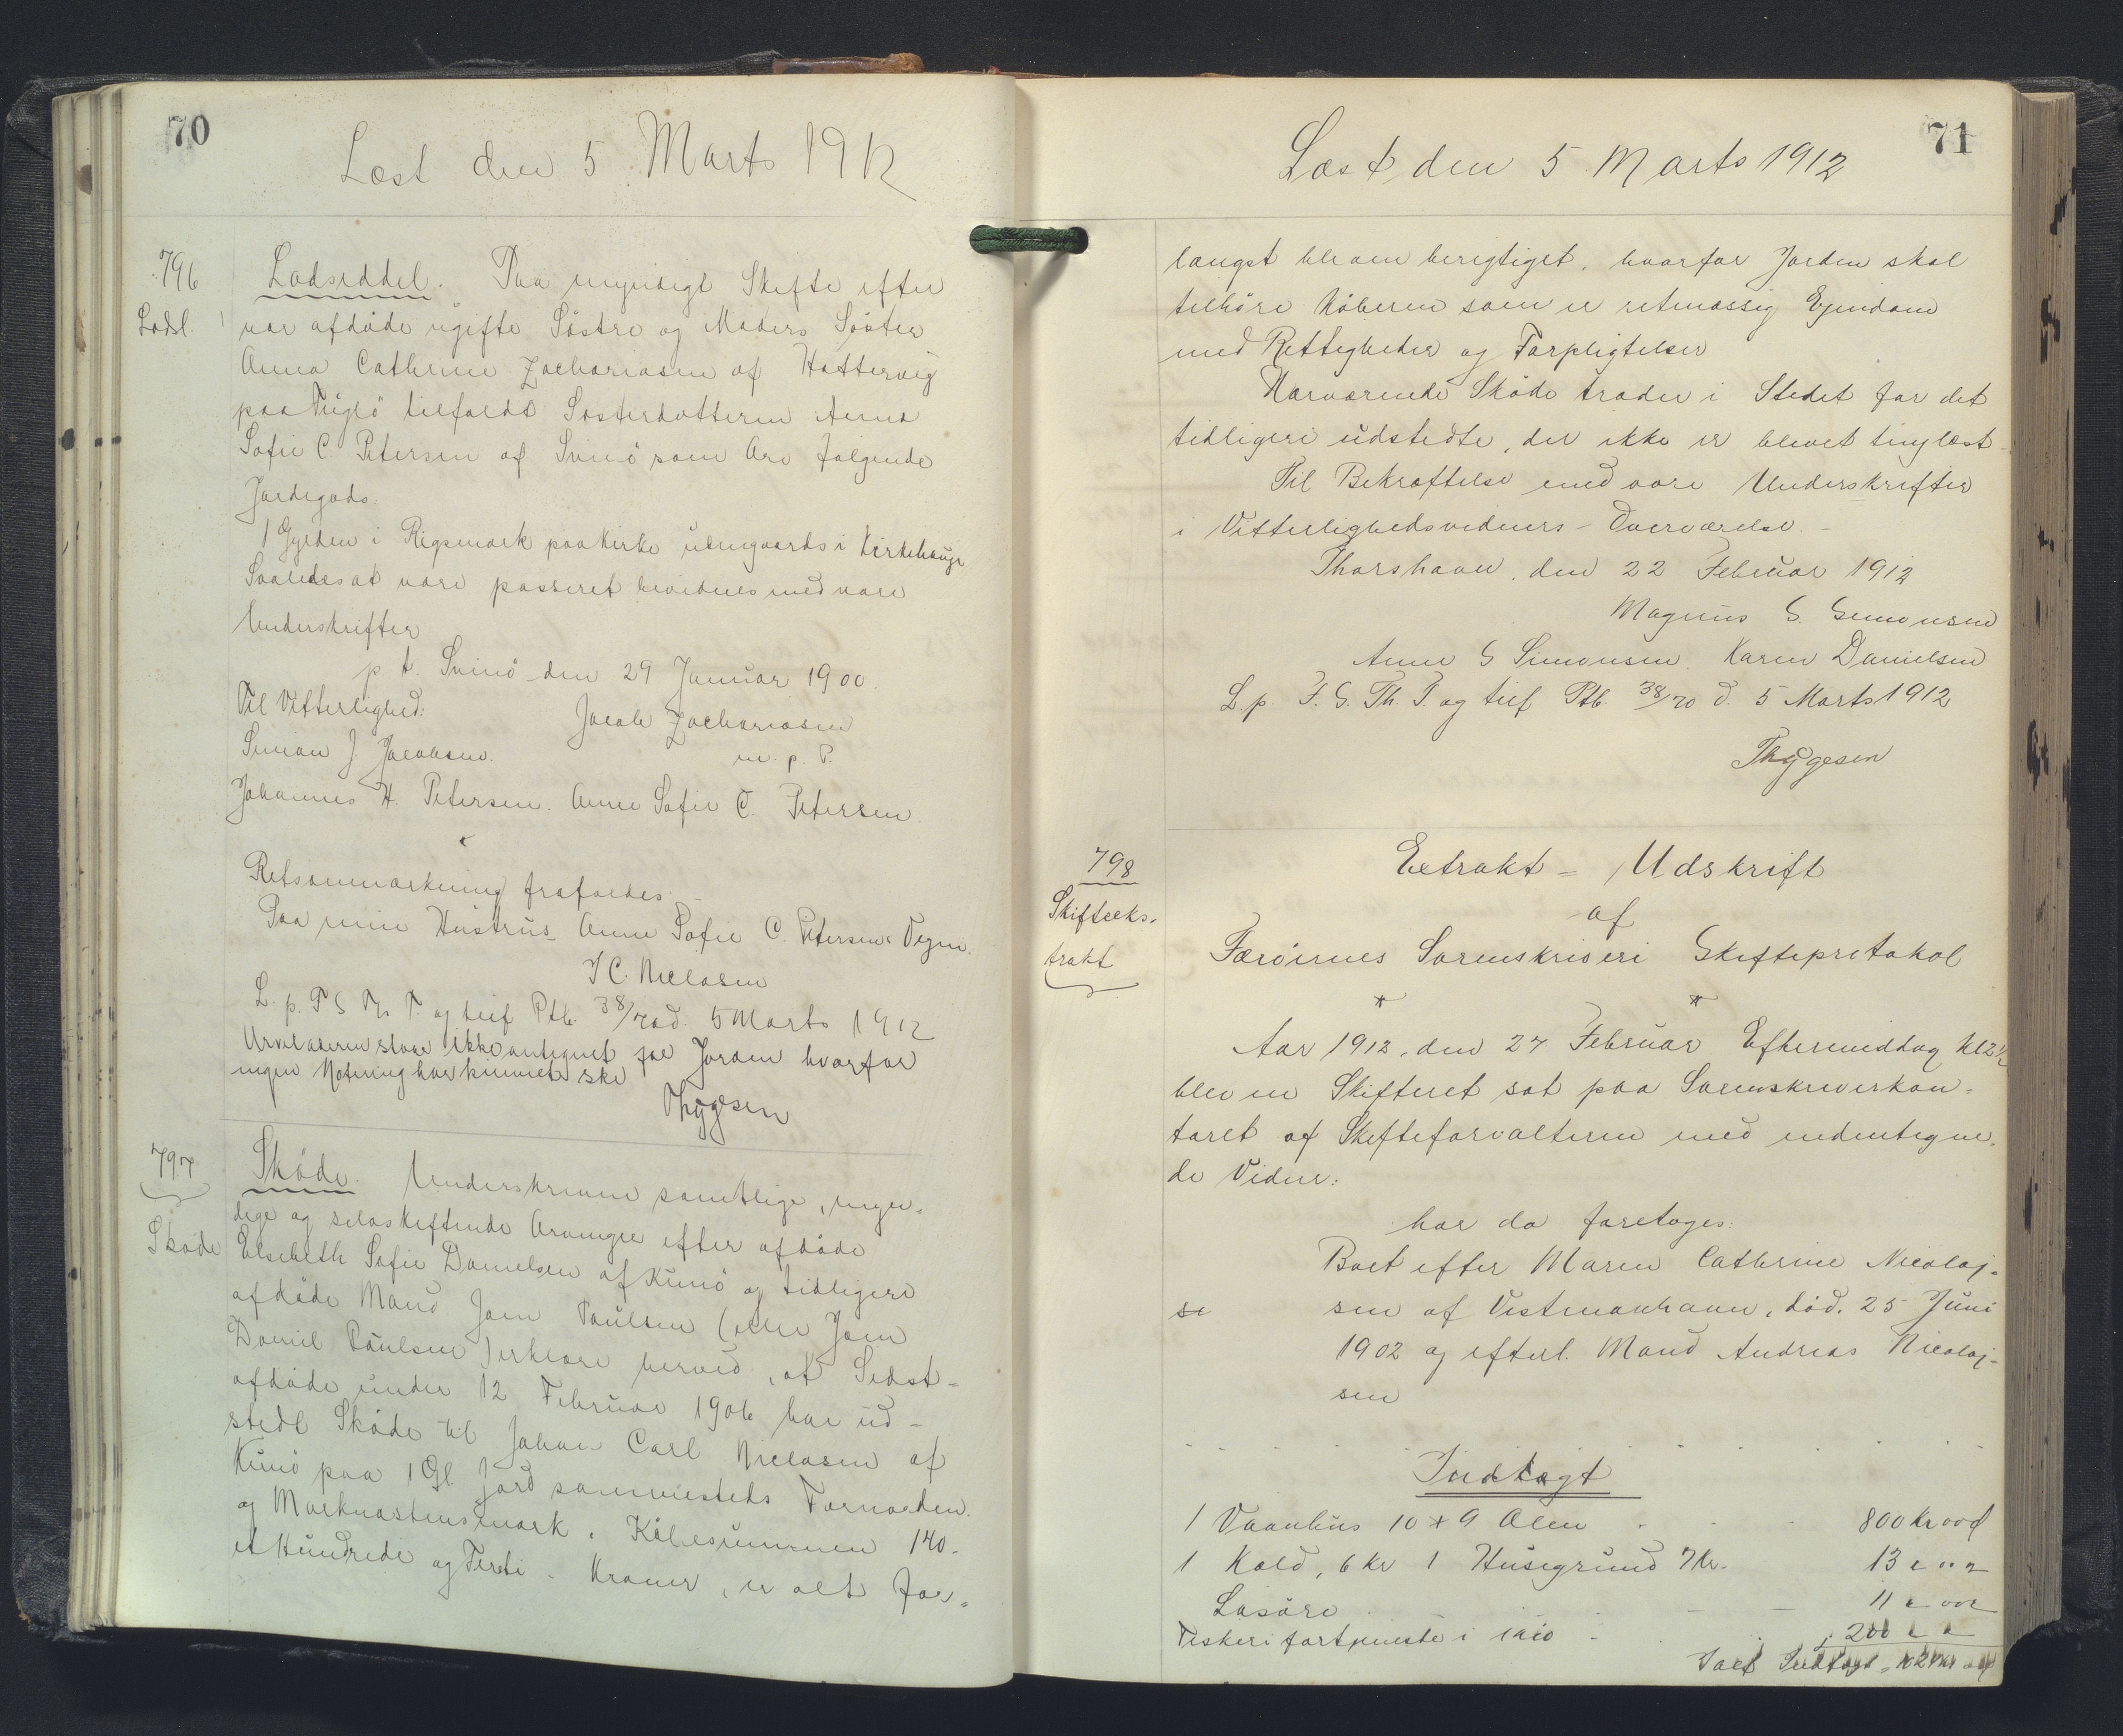 70
Læst den 5 Marts 1912
796
Lodsl.
Lodseddel. Paa myndigt Skifte efter
vor afdøde ugifte Søstre og Moders Søster
Anna Cathrine Zachariasen af Hattervig
paa Fuglø tilfaldt Søsterdatteren Anna
Sofie C. Petersen af Svinø som Arv følgende
Jordegods.
1 Gylden i Rigsmark paa Kirke udengaards i Kirkehauge
Saaledes at være passeret bevidnes med vore
Underskrifter
p t. Svinø den 29 Januar 1900.
Til Vitterlighed: Jacob Zachariasen
Simon J. Jacobsen. m. p. P.
Johannes H. Petersen. Anne Sofie C. Petersen.
Retsanmærkning frafaldes.
Paa min Hustrus Anne Sofie C. Petersens Vegne.
J C. Niclasen
L. p. F S Th. T. og tilf Ptb. 38/70 d. 5 Marts 1912
Arveladeren staar ikke antegnet for Jorden hvorfor
ingen Notering har kunnet ske
Thygesen
797
Skøde
Skøde. Underskrevne samtlige, myn-
dige og selvskiftende Arvinger efter afdøde
Elsebeth Sofie Danielsen af Kunø og tidligere
afdøde Mand Joen Poulsen (eller Joen
Daniel Poulsen) erklære herved, at Sidst-
afdøde under 12 Februar 1906 har ud-
stedt Skøde til Johan Carl Niclasen af
Kunø paa 1 Gl. Jord sammesteds
og Marknastensmark. Købesummen 140.
et Hundrede og Firti - Kroner, er alt for-
71
Læst den 5 Marts 1912
længst bleven berigtiget, hvorfor Jorden skal
tilhøre Køberen som er retmæssig Ejendom
med Rettigheder og Forpligtelser
Nærværende Skøde træder i Stedet for det
tidligere udstedte, der ikke er blevet tinglæst.
Til Bekræftelse med vore Underskrifter
i Vitterlighedsvidners - Overværelse. -
Thorshavn, den 22 Februar 1912
Magnus S. Simonsen
Anne S Simonsen Karen Danielsen
L. p. F. S. Th. T. og tilf Ptb. 38/70 d. 5 Marts 1912
Thygesen
798
Skifteeks-
trakt
Extrakt = Udskrift
af
Færøernes Sorenskriveri Skifteprotokol
* *
Aar 1912, den 27 Februar Eftermiddag Kl 2 1/2
blev en Skifteret sat paa Sorenskriverkon-
toret af Skifteforvalteren med undertegne-
de Vidner:
hvor da foretoges:
Boet efter Maren Cathrine Nicolaj-
se
sen af Vestmanhavn, død. 25 Juni
1902 og efterl. Mand Andreas Nicolaj-
sen
Indtægt
1 Vaanhus 10 x 9 Alen 800 Kr 00 Ø
1 Kold, 6 Kr 1 Husegrund 7 Kr. 13 " 00 "
Løsøre 11 " 00 "
Fiskerifortjeneste i - 200 " "
Ialt Indtægt